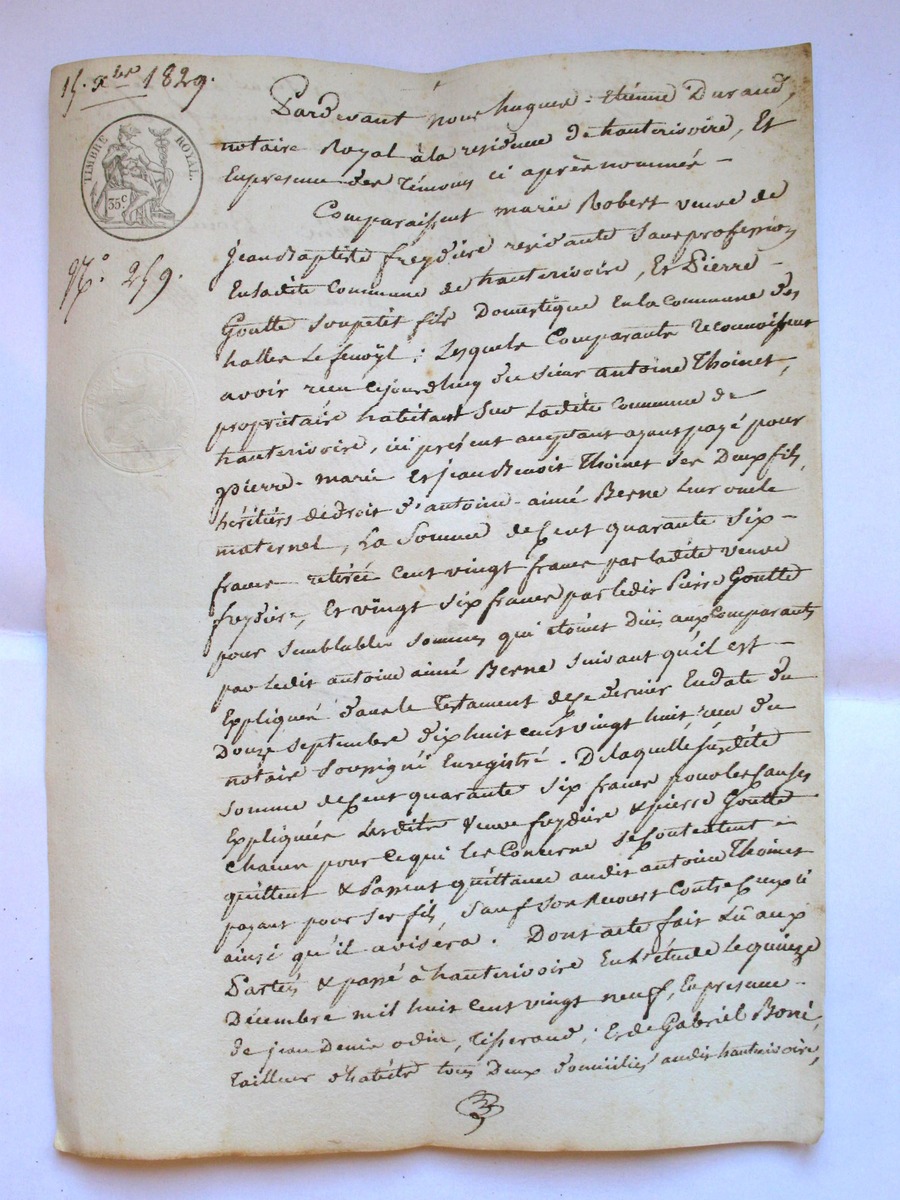 15. Xbre 1829.
TIMBRE ROYAL.
35c
No. 259.
Pardevant nous hugues-Etienne Durand,
notaire Royal à la residence de hauterivoire, Et
En presence des Témoins ci après nommés –
Comparaissent marie Robert veuve de
jean Baptiste freydière residante sans profession
En ladite Commune de hauterivoire, Et Pierre –
Goutte son petit fils Domestique En la Commune des
halles Le fenoÿl; Lesquels Comparants reconnoissent
avoir reçu cejourdhuy du sieur antoine Thoinet,
propriétaire habitant sur Ladite Commune de
hauterivoire, ici présent acceptant ayant payé pour
pierre-marie Et jean Benoit Thoinet ses Deux fils,
héritiers de droit d'antoine-aimé Berne Leur oncle
maternel, La Somme de Cent quarante six –
francs retirée cent vingt francs par ladite veuve
freydière, Et vingt six francs par ledit Pierre Goutte
pour semblables sommes qui étoient dües aux Comparants
par Ledit antoine aimé Berne suivant qu'il est –
Expliqué dans le Testament de Ce dernier En date du
Douze septembre dix huit cent vingt huit reçu du
notaire soussigné Enregistré. De laquelle susdite
somme de Cent quarante six francs pour les causes
Expliquées Lesdits veuve freydière & pierre Goutte
chacun pour Ce qui les Concerne se Contentent –
quittent & Passent quittance audit antoine Thoinet
payant pour ses fils, sauf son Recourt Contre Ceux ci
ainsi qu'il avisera. Dont acte fait Lû aux
Parties & passé à hauterivoire En L'étude Le quinze
Décembre mil huit cent vingt neuf, En presence –
de jean Denis odin, Tisserand, Et de Gabriel Boné,
Tailleur d'habits tous Deux domiciliés audit hauterivoire,